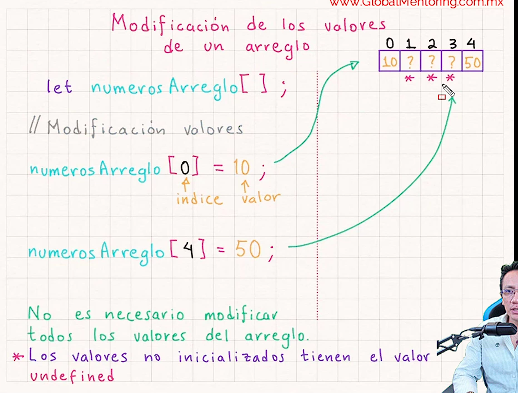 www.GlobalMentoring.com.mx
Modificación de los valores
de un arreglo
0 1 2 3 4
10 ? ? ? 50
* * *
let numerosArreglo[ ] ;
// Modificación valores
numerosArreglo [0] = 10 ;
indice valor
numerosArreglo [4] = 50 ;
No es necesario modificar
todos los valores del arreglo.
* Los valores no inicializados tienen el valor
undefined